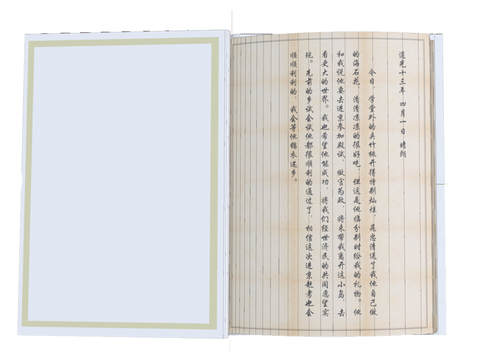 道光十三年 四月一日 晴朗
今日，学堂外的夹竹桃开得特别灿烂，庭忠清送了我他自己做
的海石花，清清凉凉的很好吃。但这是他临分别时给我的礼物。他
和我说他要去进京参加殿试，做官为政，将来带我离开这小岛，去
看更大的世界。我也希望他能成功，将我们经世济民的共同愿望实
现。先前的乡试会试他都很顺利的通过了，相信这次进京赶考也会
顺顺利利的，我会等他锦衣还乡。